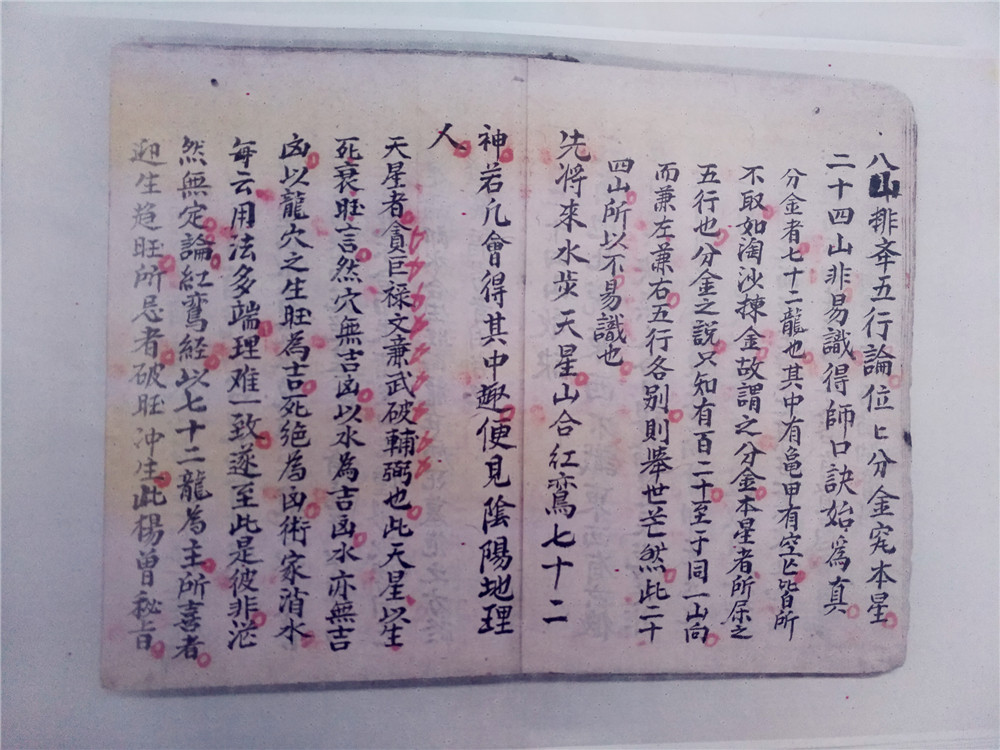 八山排來五行論位匕分金究本星
二十四山非易識得師口訣始為真
分金者七十二龍也其中有亀甲有空亡皆所
不取如淘沙揀金故謂之分金本星者所屬之
五行也分金之說又知有百二十至于同一山向
而兼左兼右五行各别則舉世茫然此二十
四山所以不易識也
先將來水步天星山合紅鸞七十二
神若凡會得其中趣便見陰陽地理
人
天星者貪巨祿文亷武破輔弼也此天星以生
死衰旺言然穴無吉凶以水為吉凶水亦無吉
凶以龍穴之生旺為吉死絶為凶術家消水
每云用法多端理难一致遂至此是彼非泛
然無定論紅鸞經以七十二龍為主所喜者
迎生趋旺所忌者破旺冲生此楊曽秘旨